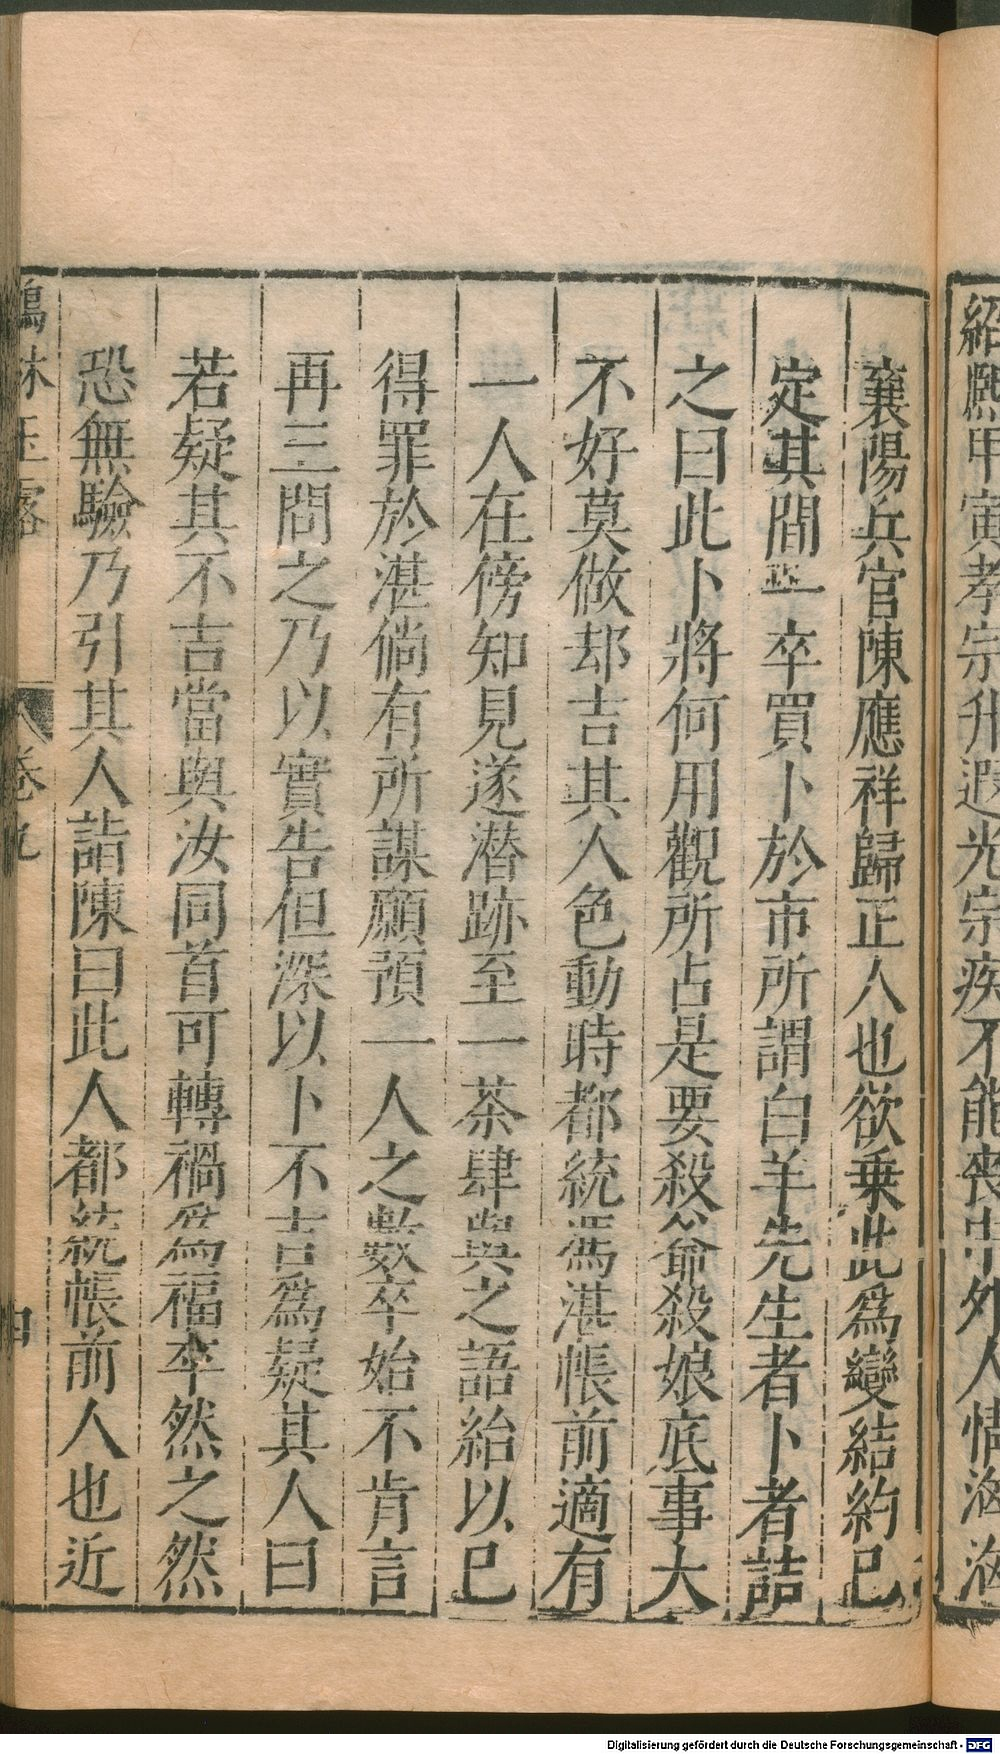 紹熙甲寅孝宗升遐光宗疾不能喪中外人情洶洶
襄陽兵官陳應祥歸正人也欲乗此爲變結約已
定其間一卒買卜於市所謂白羊先生者卜者詰
之曰此卜將何用觀所占是要殺爺殺娘底事大
不好莫做却吉其人色動時都統馮湛帳前適有
一人在傍知見遂潜跡至一茶肆與之語紿以已
得罪於湛倘有所謀願預一人之數卒始不肯言
再三問之乃以實告但深以卜不吉爲疑其人曰
若疑其不吉當與汝同首可轉禍爲福卒然之然
恐無驗乃引其人詣陳曰此人都統帳前人也近
鶴林玉露 卷九 四
Digitalisierung gefördert durch die Deutsche Forschungsgemeinschaft - DFG